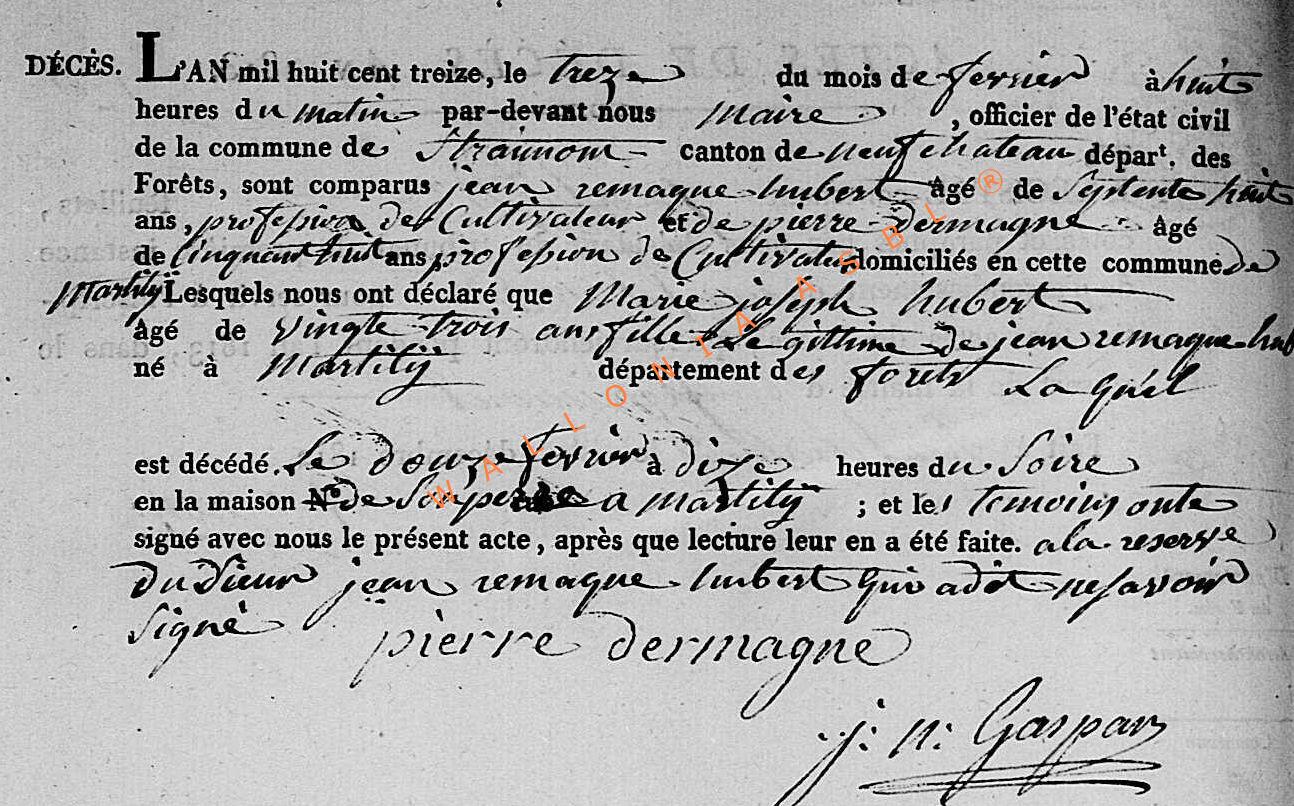 DÉCÈS. L'AN mil huit cent treize, le treze du mois de fevrier à huit
heures du matin par-devant nous maire , officier de l'état civil
de la commune de Straimont canton de neufchateau dépar^t. des
Forêts, sont comparus jean remaque hubert âgé de Septente huit
ans, profession de Cultivateur et de pierre dermagne âgé
de Cinquant huit ans profession de Cultivateur domiciliés en cette commune de
Martilÿ Lesquels nous ont déclaré que Marie joseph hubert
âgé de vingte trois ans fille Legittime de jean remaque hub
né à Martilÿ département des forets La quel
est décédé. Le douze fevrier à dize heures du Soire
en la maison N.° de Son pere a martilÿ ; et les temoins onte
signé avec nous le présent acte, après que lecture leur en a été faite. a la reserve
du Sieur jean remaque hubert qui a dit ne savoir
Signé pierre dermagne
j: n: Gaspar
WALLONIA ASBL ®